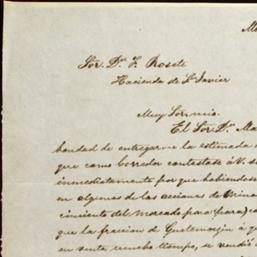 Me
Sor. Dn. F. Rosete
Hacienda de Sn Javier
Muy Sor. mio.
El Sor. Dn. Ma
bondad de entregarme la estimada
que como corredor contestase á V.
inmediatamente por que habiendose
en algunas de las acciones de Mina
cimiento del mercado para
que la fraccion de Guatemozin á
en venta mucho tiempo, se vendió